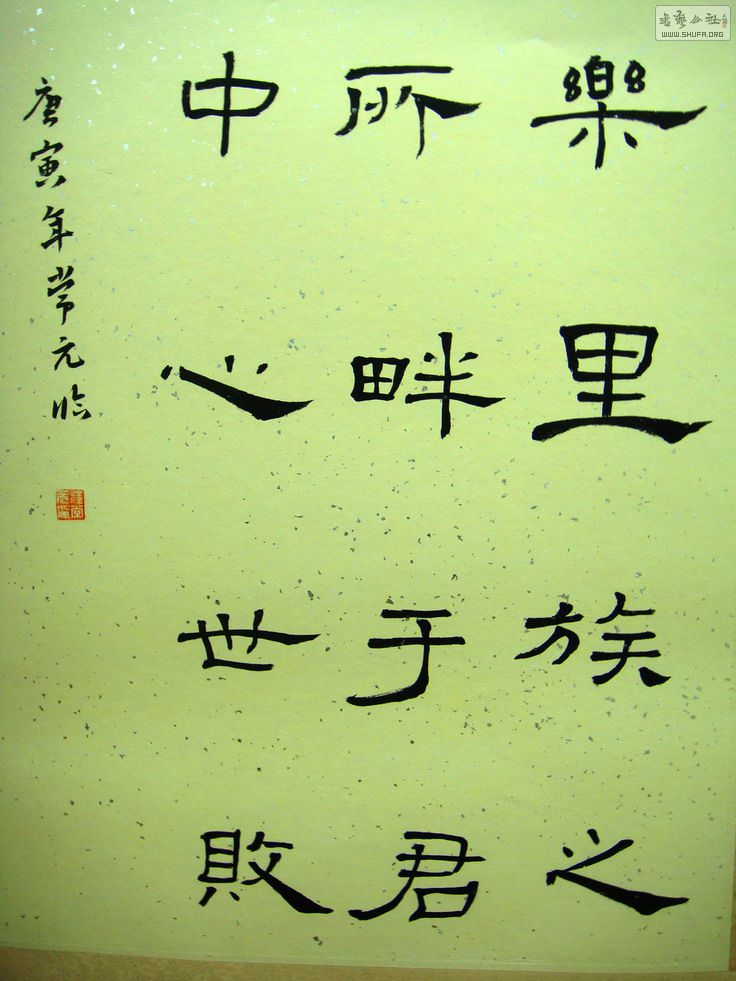 樂里族之
所畔于君
中心世敗
庚寅年常元臨
書藝公社
WWW.SHUFA.ORG